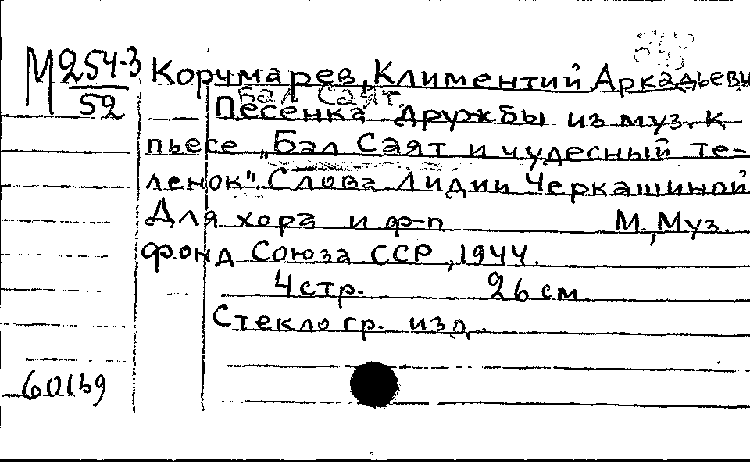 М 254-3
52
Корчмарев, Климентий Аркадьеви
Бал Саят
Песенка дружбы из муз. к
пьесе „Бал Саят и чудесный те-
ленок". Слова Лидии Черкашиной
Для хора и ф-п М., Муз.
фонд Союза ССР, 1944.
4 стр. 26 см.
Стеклогр. изд.
60139